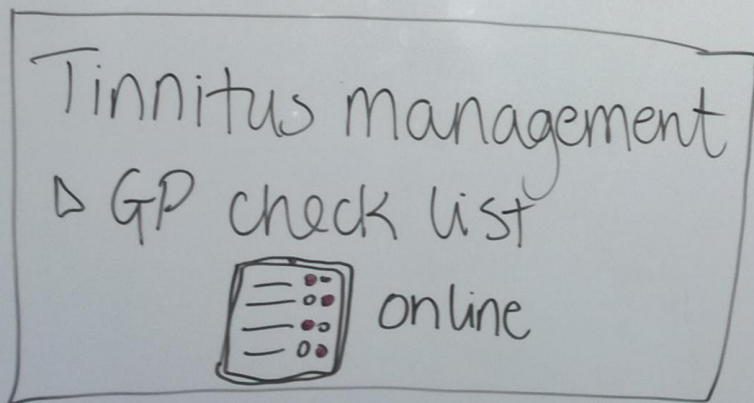 Tinnitus management
▷ GP check list
online